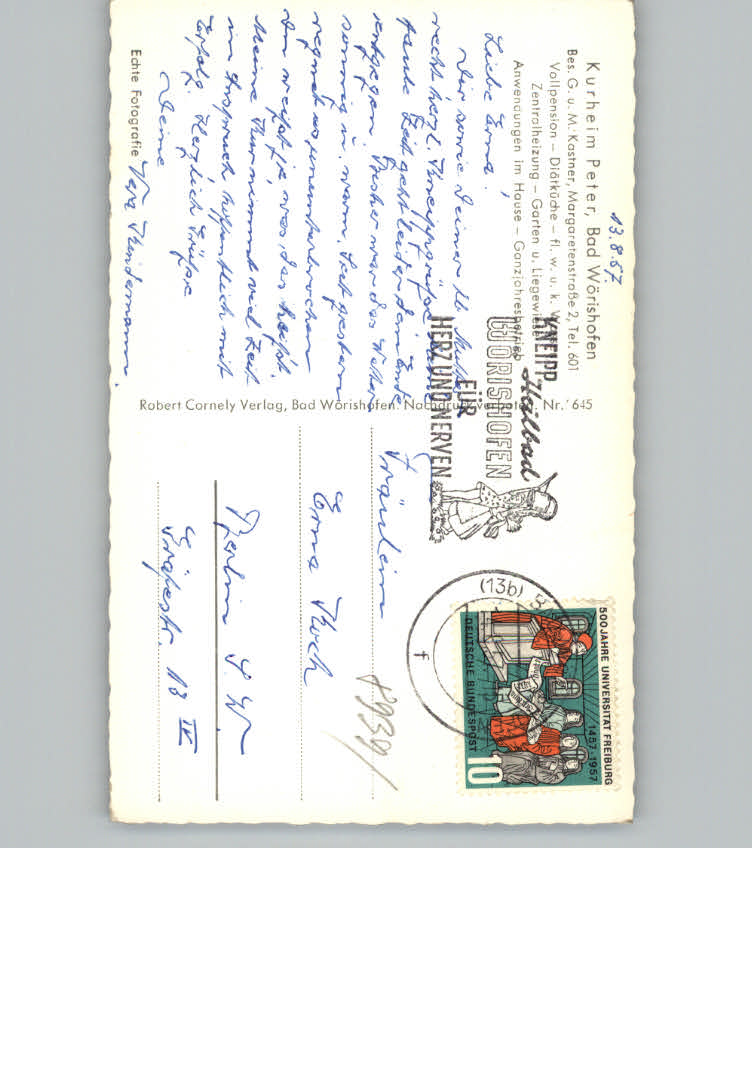 Kurheim Peter, Bad Wörishofen
Bes. G. u. M. Kastner, Margaretenstraße 2, Tel. 601
Vollpension – Diätküche – fl. w. u. k.
Zentralheizung – Garten u. Liegewiese
Anwendungen im Hause – Ganzjahresbetrieb
13.8.57.
Liebe Erna!
Dir sowie Deiner lb. Mutter
recht herzl. Kneippgrüße.
geht leider dem Ende
entgegen. Bisher war das Wetter
sonnig u. warm. Seit gestern
regnet es ununterbrochen
Du weißt ja, was das heißt.
Meine Kur nimmt viel Zeit
in Anspruch, hoffentlich mit
Erfolg. Herzliche Grüße
Deine
Echte Fotografie
Robert Cornely Verlag, Bad Wörishofen. Nachdruck verboten. Nr. 645
KNEIPP Heilbad
WÖRISHOFEN
FÜR
HERZ UND NERVEN
(13b)
f
500 JAHRE UNIVERSITÄT FREIBURG
1457-1957
DEUTSCHE BUNDESPOST
10
Fräulein
Erna Koch
Berlin S. W.
Gräfestr. 18 IV
8939/